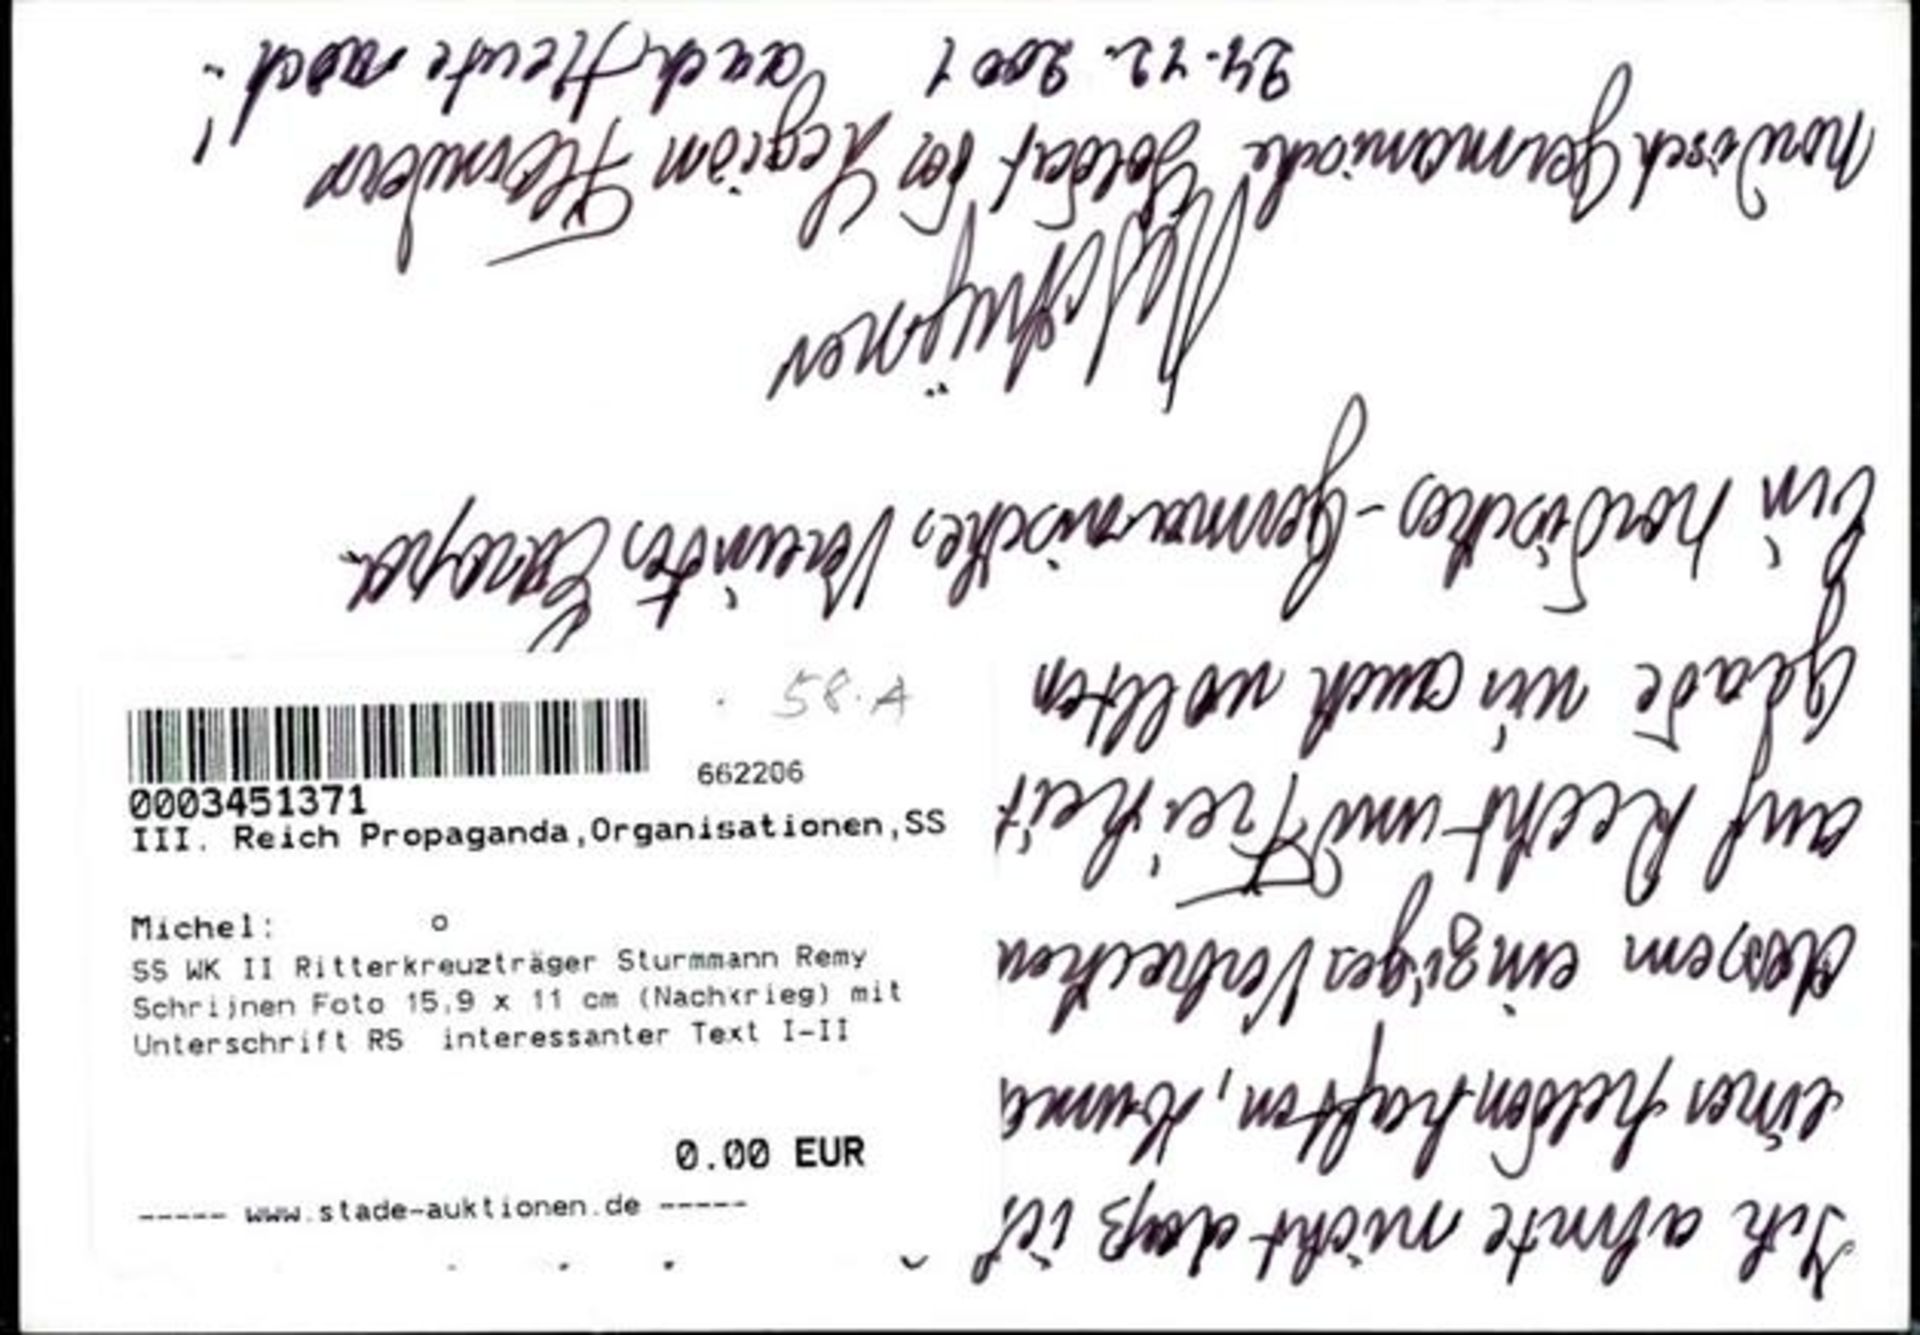 Ich ahnte nicht daß ich
einer heldenhaften,
dessem einziges Verbrechen
auf Recht und Freiheit
wir auch wollten
Ein nordisches-Germanisches, Vereintes Europa.
RSchrijnen
nordisch Germanische Soldat der Legion Flandern
24.12.2001 auch Heute noch.!
58.A
662206
0003451371
III. Reich Propaganda,Organisationen,SS
Michel: o
SS WK II Ritterkreuzträger Sturmmann Remy
Schrijnen Foto 15,9 x 11 cm (Nachkrieg) mit
Unterschrift RS interessanter Text I-II
0.00 EUR
----- www.stade-auktionen.de -----